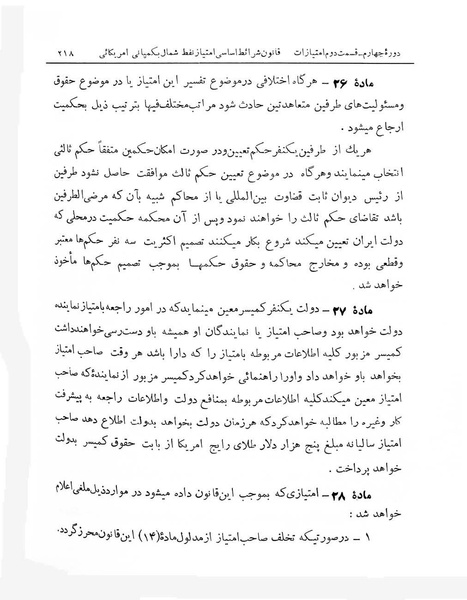 دورهٔ چهارم - قسمت دوم امتیازات قانون شرائط اساسی امتیاز نفط شمال بکمپانی امریکائی ۲۱۸
مادهٔ ۲۶ - هرگاه اختلافی درموضوع تفسیر این امتیاز یا در موضوع حقوق
ومسئولیت‌های طرفین متعاهدتین حادث شود مراتب مختلف‌فیها بترتیب ذیل بحکمیت
ارجاع میشود .
هریك از طرفین یکنفر حکم تعیین ودر صورت امکان حکمین متفقاً حکم ثالثی
انتخاب مینمایند وهرگاه در موضوع تعیین حکم ثالث موافقت حاصل نشود طرفین
از رئیس دیوان ثابت قضاوت بین‌المللی یا از محاکم شبیه بآن که مرضی‌الطرفین
باشد تقاضای حکم ثالث را خواهند نمود وپس از آن محکمه حکمیت درمحلی که
دولت ایران تعیین میکند شروع بکار میکنند تصمیم اکثریت سه نفر حکم‌ها معتبر
وقطعی بوده و مخارج محاکمه و حقوق حکمهـا بموجب تصمیم حکم‌ها مأخوذ
خواهد شد .
مادهٔ ۲۷ - دولت یکنفر کمیسر معین مینماید که در امور راجعه بامتیاز نماینده
دولت خواهد بود وصاحب امتیاز یا نمایندگان او همیشه باو دست‌رسی خواهند داشت
کمیسر مزبور کلیه اطلاعات مربوطه بامتیاز را که دارا باشد هر وقت صاحب امتیاز
بخواهد باو خواهد داد واورا راهنمائی خواهد کرد کمیسر مزبور از نمایندهٔ که صاحب
امتیاز معین میکند کلیه اطلاعات مربوطه بمنافع دولت واطلاعات راجعه به پیشرفت
کار وغیره را مطالبه خواهد کرد که هرزمان دولت بخواهد بدولت اطلاع دهد صاحب
امتیاز سالیانه مبلغ پنج هزار دلار طلای رایج امریکا از بابت حقوق کمیسر بدولت
خواهد پرداخت .
مادهٔ ۲۸ - امتیازی که بموجب این قانون داده میشود در موارد ذیل ملغی اعلام
خواهد شد :
۱ - درصورتیکه تخلف صاحب امتیاز از مدلول مادهٔ (۱۴) این قانون محرز گردد.